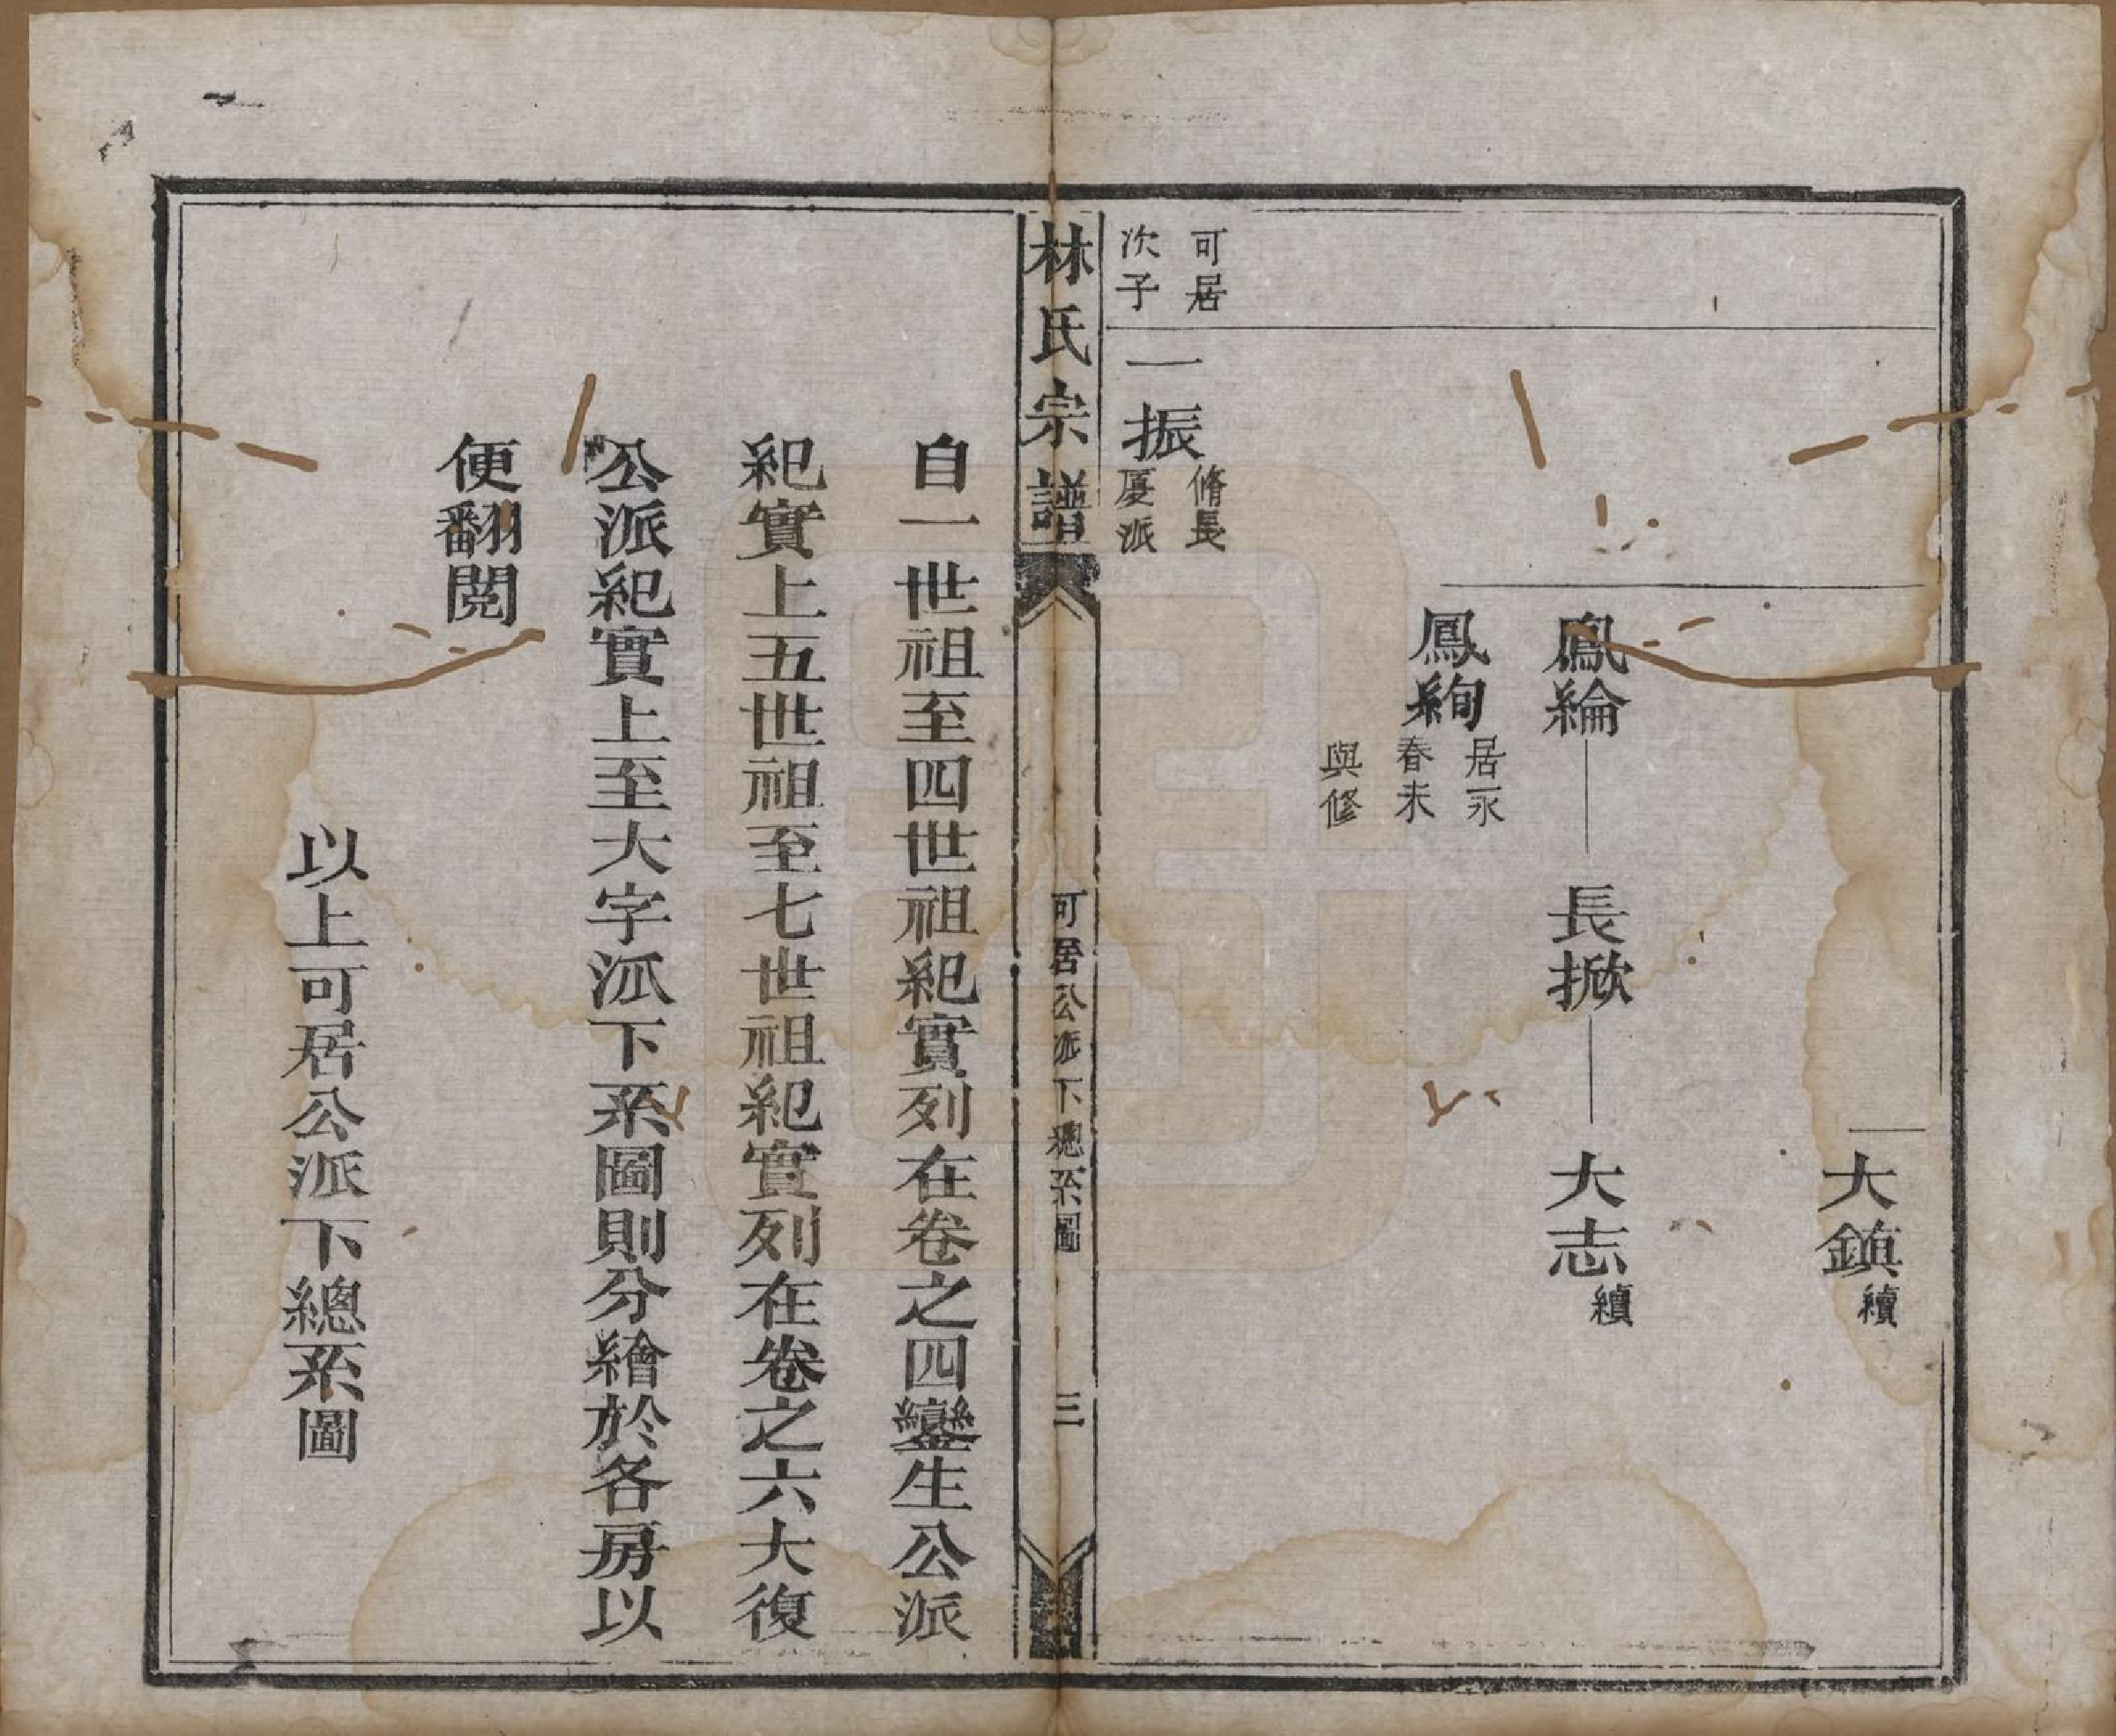 大鎮續
鳳綸 長掀 大志續
鳳絢居永春未與修
可居次子 一振脩長廈派
林氏宗譜 可居公派下總系圖 三
自一世祖至四世祖紀實列在卷之四鸞生公派
紀實上五世祖至七世祖紀實列在卷之六大復
公派紀實上至大字派下系圖則分繪於各房以
便翻閱
以上可居公派下總系圖